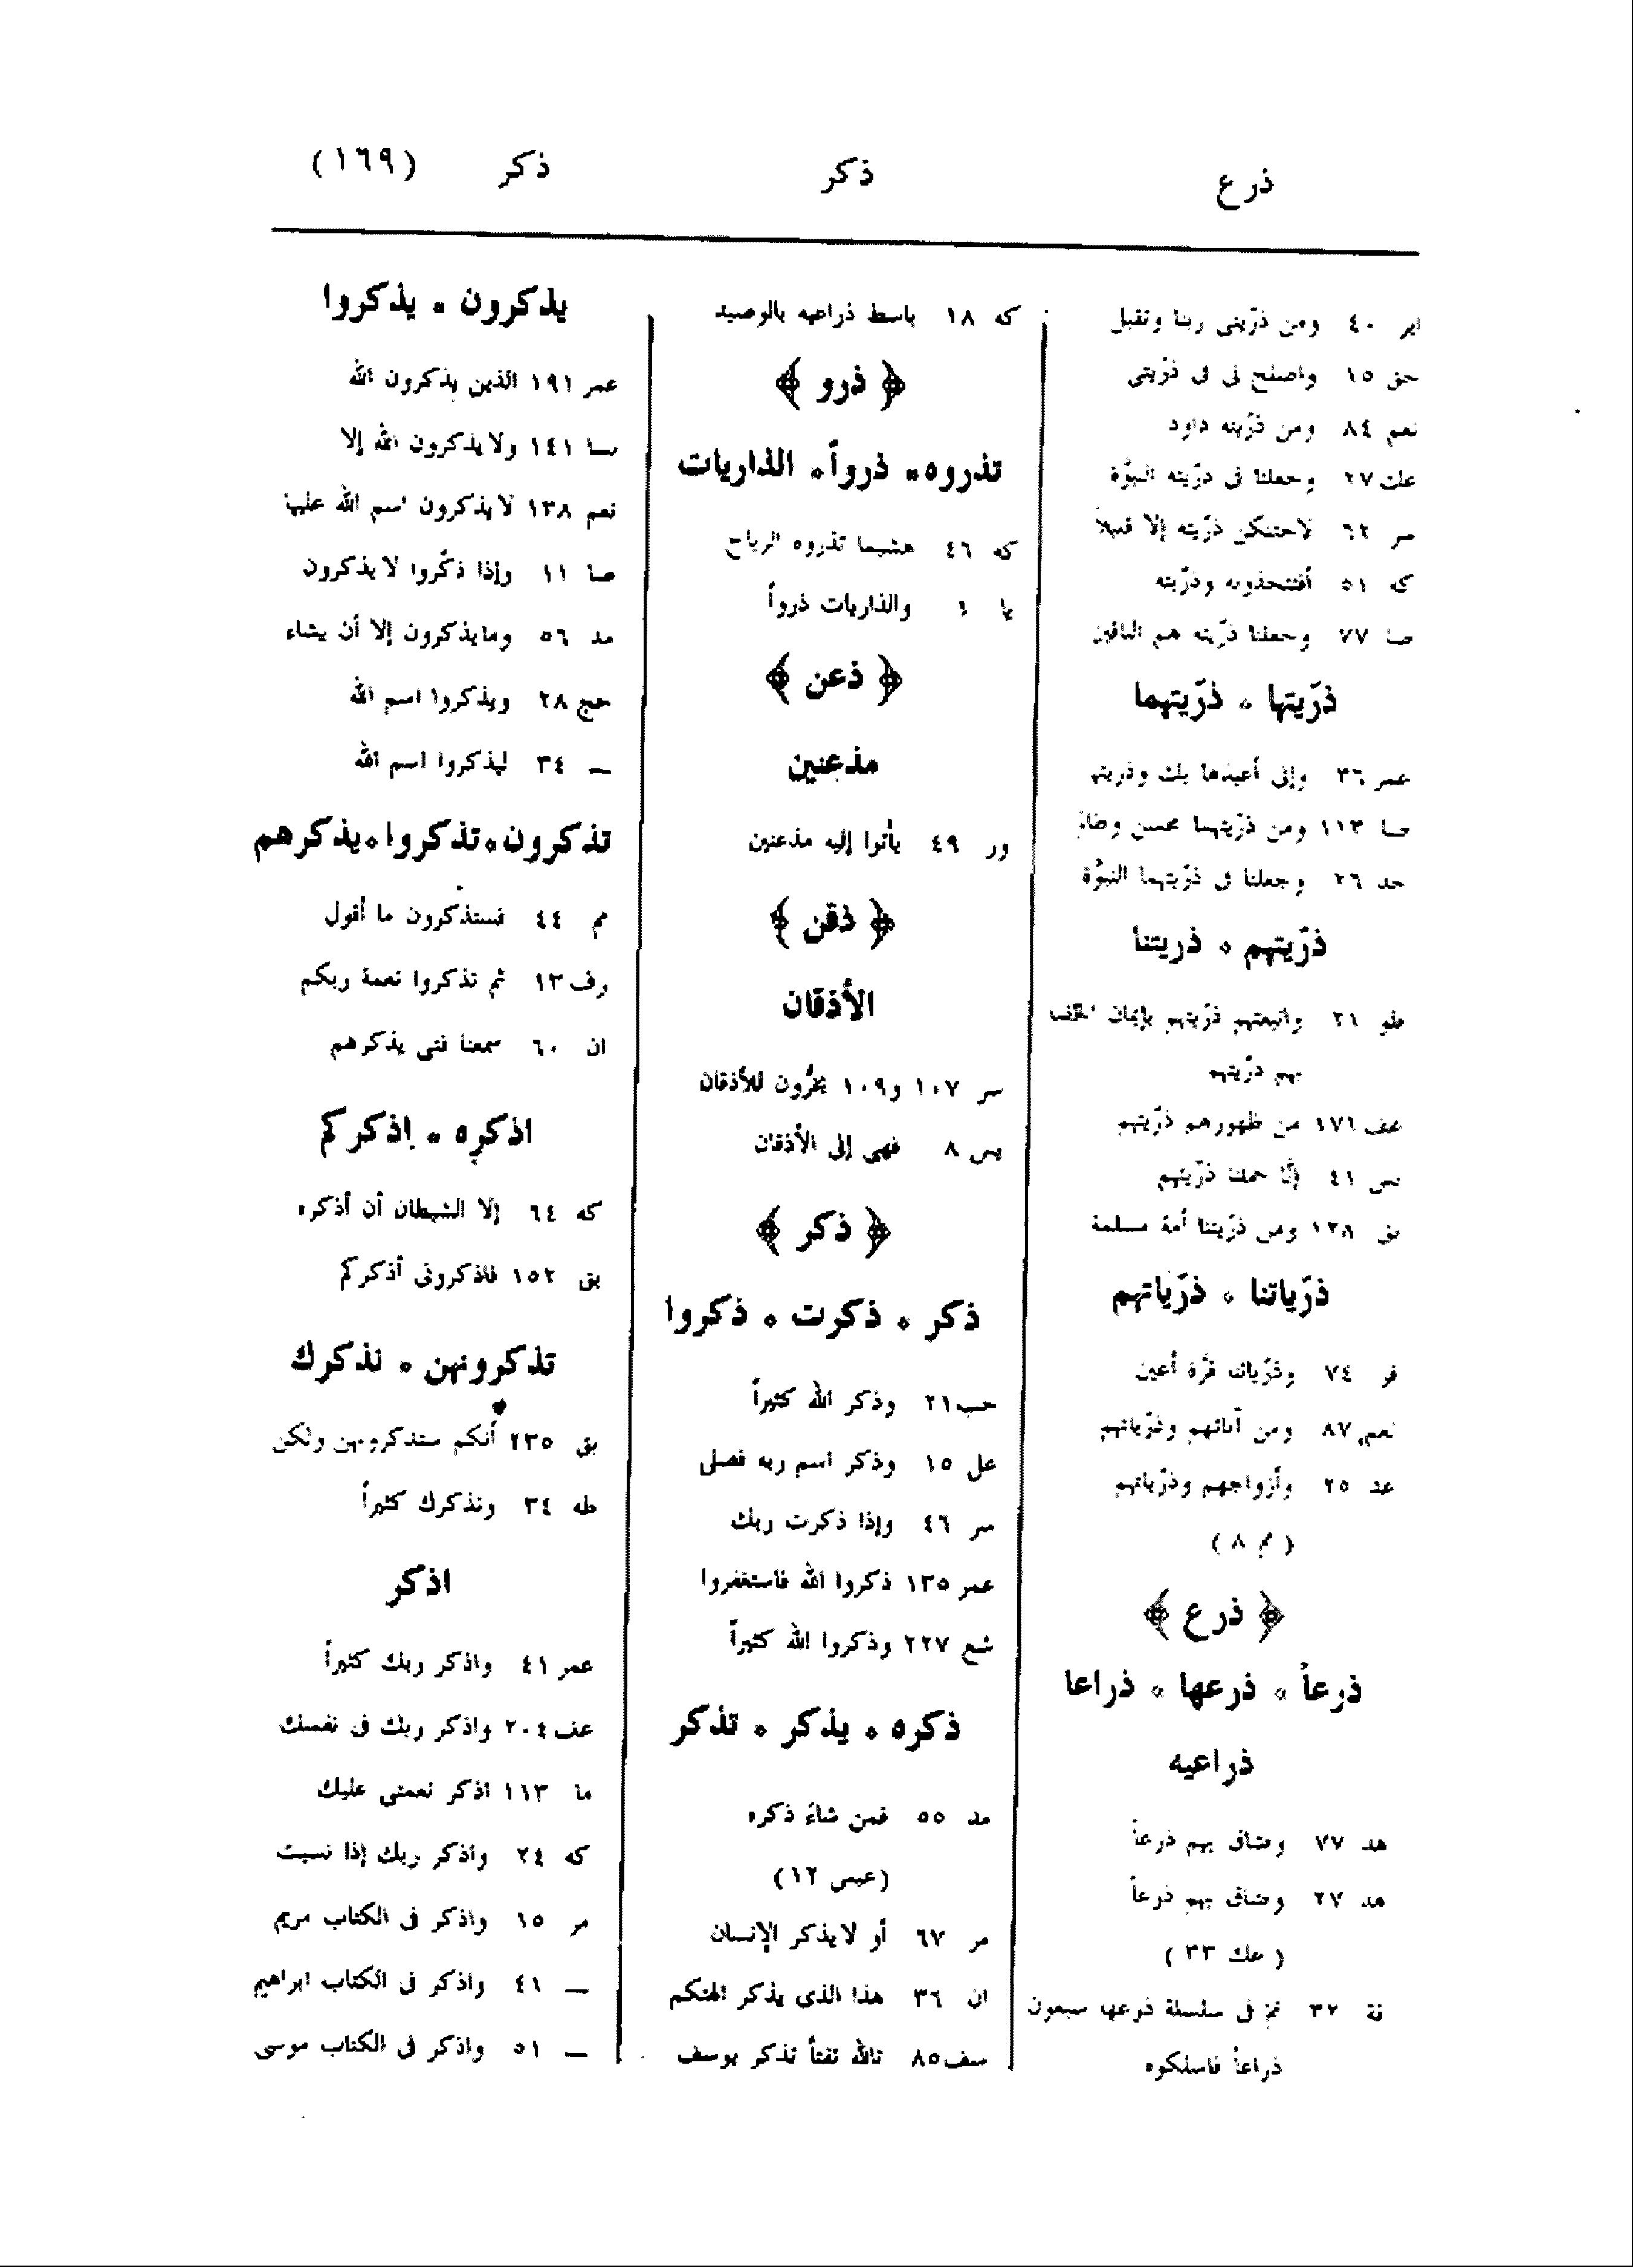 ذرع
ذكر
ذكر (١٦٩)
ابر ٤٠ ومن ذرّيتى ربنا وتقبل
حق ١٥ واصلح لى فى ذرّيتى
نعم ٨٤ ومن ذرّيته داود
عك ٢٧ وجعلنا فى ذرّيته النبوّة
سر ٦٢ لاحتنكن ذرّيته إلا قليلاً
كه ٥١ أفتتخذونه وذرّيته
صا ٧٧ وجعلنا ذرّيته هم الباقين
ذرّيتها ٠ ذرّيتهما
عمر ٣٦ وإنى أعيذها بك وذريتها
صا ١١٣ ومن ذرّيتهما محسن وظالم
حد ٢٦ وجعلنا فى ذرّيتهما النبوّة
ذرّيتهم ٠ ذريتنا
طو ٢١ واتبعتهم ذرّيتهم بإيمان ألحقنا
بهم ذرّيتهم
عف ١٧١ من ظهورهم ذرّيتهم
يس ٤١ إنّا حملنا ذرّيتهم
بق ١٢٨ ومن ذرّيتنا أمة مسلمة
ذرّياتنا ٠ ذرّياتهم
فر ٧٤ وذرّياتنا قرّة أعين
نعم ٨٧ ومن آبائهم وذرّياتهم
عد ٢٥ وأزواجهم وذرّياتهم
( مم ٨ )
﴿ ذرع ﴾
ذرعاً ٠ ذرعها ٠ ذراعا
ذراعيه
هد ٧٧ وضاق بهم ذرعاً
هد ٢٧ وضاق بهم ذرعاً
( عك ٣٣ )
قة ٣٢ ثم فى سلسلة ذرعها سبعون
ذراعاً فاسلكوه
كه ١٨ باسط ذراعيه بالوصيد
﴿ ذرو ﴾
تذروه ٠ ذرواً ٠ الذاريات
كه ٤٦ هشيما تذروه الرياح
يا ١ والذاريات ذرواً
﴿ ذعن ﴾
مذعنين
ور ٤٩ يأتوا إليه مذعنين
﴿ ذقن ﴾
الأذقان
سر ١٠٧ و١٠٩ يخرّون للأذقان
يس ٨ فهى إلى الأذقان
﴿ ذكر ﴾
ذكر ٠ ذكرت ٠ ذكروا
حب ٢١ وذكر الله كثيراً
عل ١٥ وذكر اسم ربه فصلى
سر ٤٦ وإذا ذكرت ربك
عمر ١٣٥ ذكروا الله فاستغفروا
شع ٢٢٧ وذكروا الله كثيراً
ذكره ٠ يذكر ٠ تذكر
مد ٥٥ فمن شاءَ ذكره
(عبس ١٢)
مر ٦٧ أو لا يذكر الإنسان
ان ٣٦ هذا الذى يذكر الهتكم
سف ٨٥ تالله تفتأ تذكر يوسف
يذكرون ٠ يذكروا
عمر ١٩١ الذين يذكرون الله
نسا ١٤١ ولا يذكرون الله إلا
نعم ١٣٨ لا يذكرون اسم الله عليها
صا ١١ وإذا ذكّروا لا يذكرون
مد ٥٦ وما يذكرون إلا أن يشاء
حج ٢٨ ويذكروا اسم الله
— ٣٤ ليذكروا اسم الله
تذكرون ٠ تذكروا ٠ يذكرهم
مم ٤٤ فستذكرون ما أقول
رف ١٣ ثم تذكروا نعمة ربكم
ان ٦٠ سمعنا فتى يذكرهم
اذكره ٠ اذكركم
كه ٦٤ إلا الشيطان أن أذكره
بق ١٥٢ فاذكرونى أذكركم
تذكرونهن ٠ نذكرك
بق ٢٣٥ أنكم ستذكرونهن ولكن
طه ٣٤ ونذكرك كثيراً
اذكر
عمر ٤١ واذكر ربك كثيراً
عف ٢٠٤ واذكر ربك فى نفسك
ما ١١٣ اذكر نعمتى عليك
كه ٢٤ واذكر ربك إذا نسيت
مر ١٥ واذكر فى الكتاب مريم
— ٤١ واذكر فى الكتاب ابراهيم
— ٥١ واذكر فى الكتاب موسى